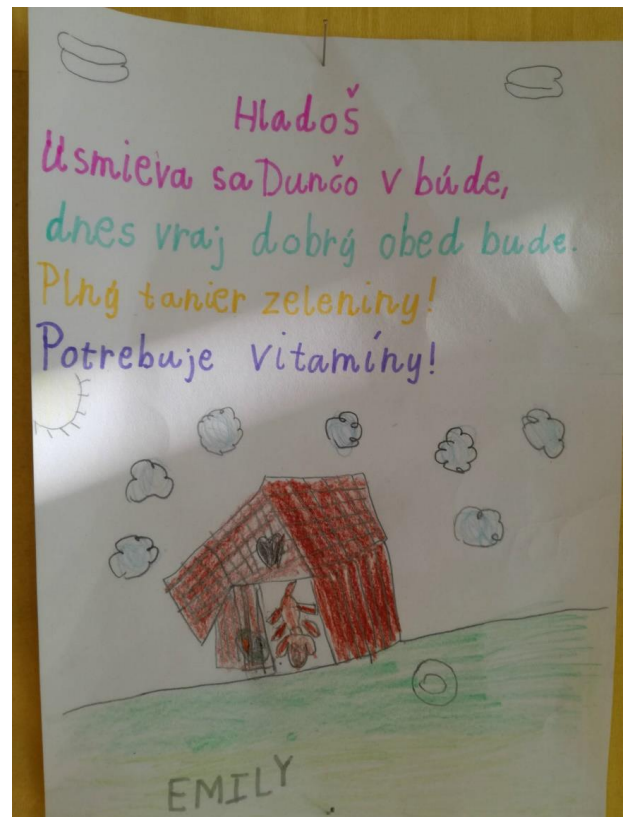 Hladoš
Usmieva sa Dunčo v búde,
dnes vraj dobrý obed bude.
Plný tanier zeleniny!
Potrebuje vitamíny!
EMILY